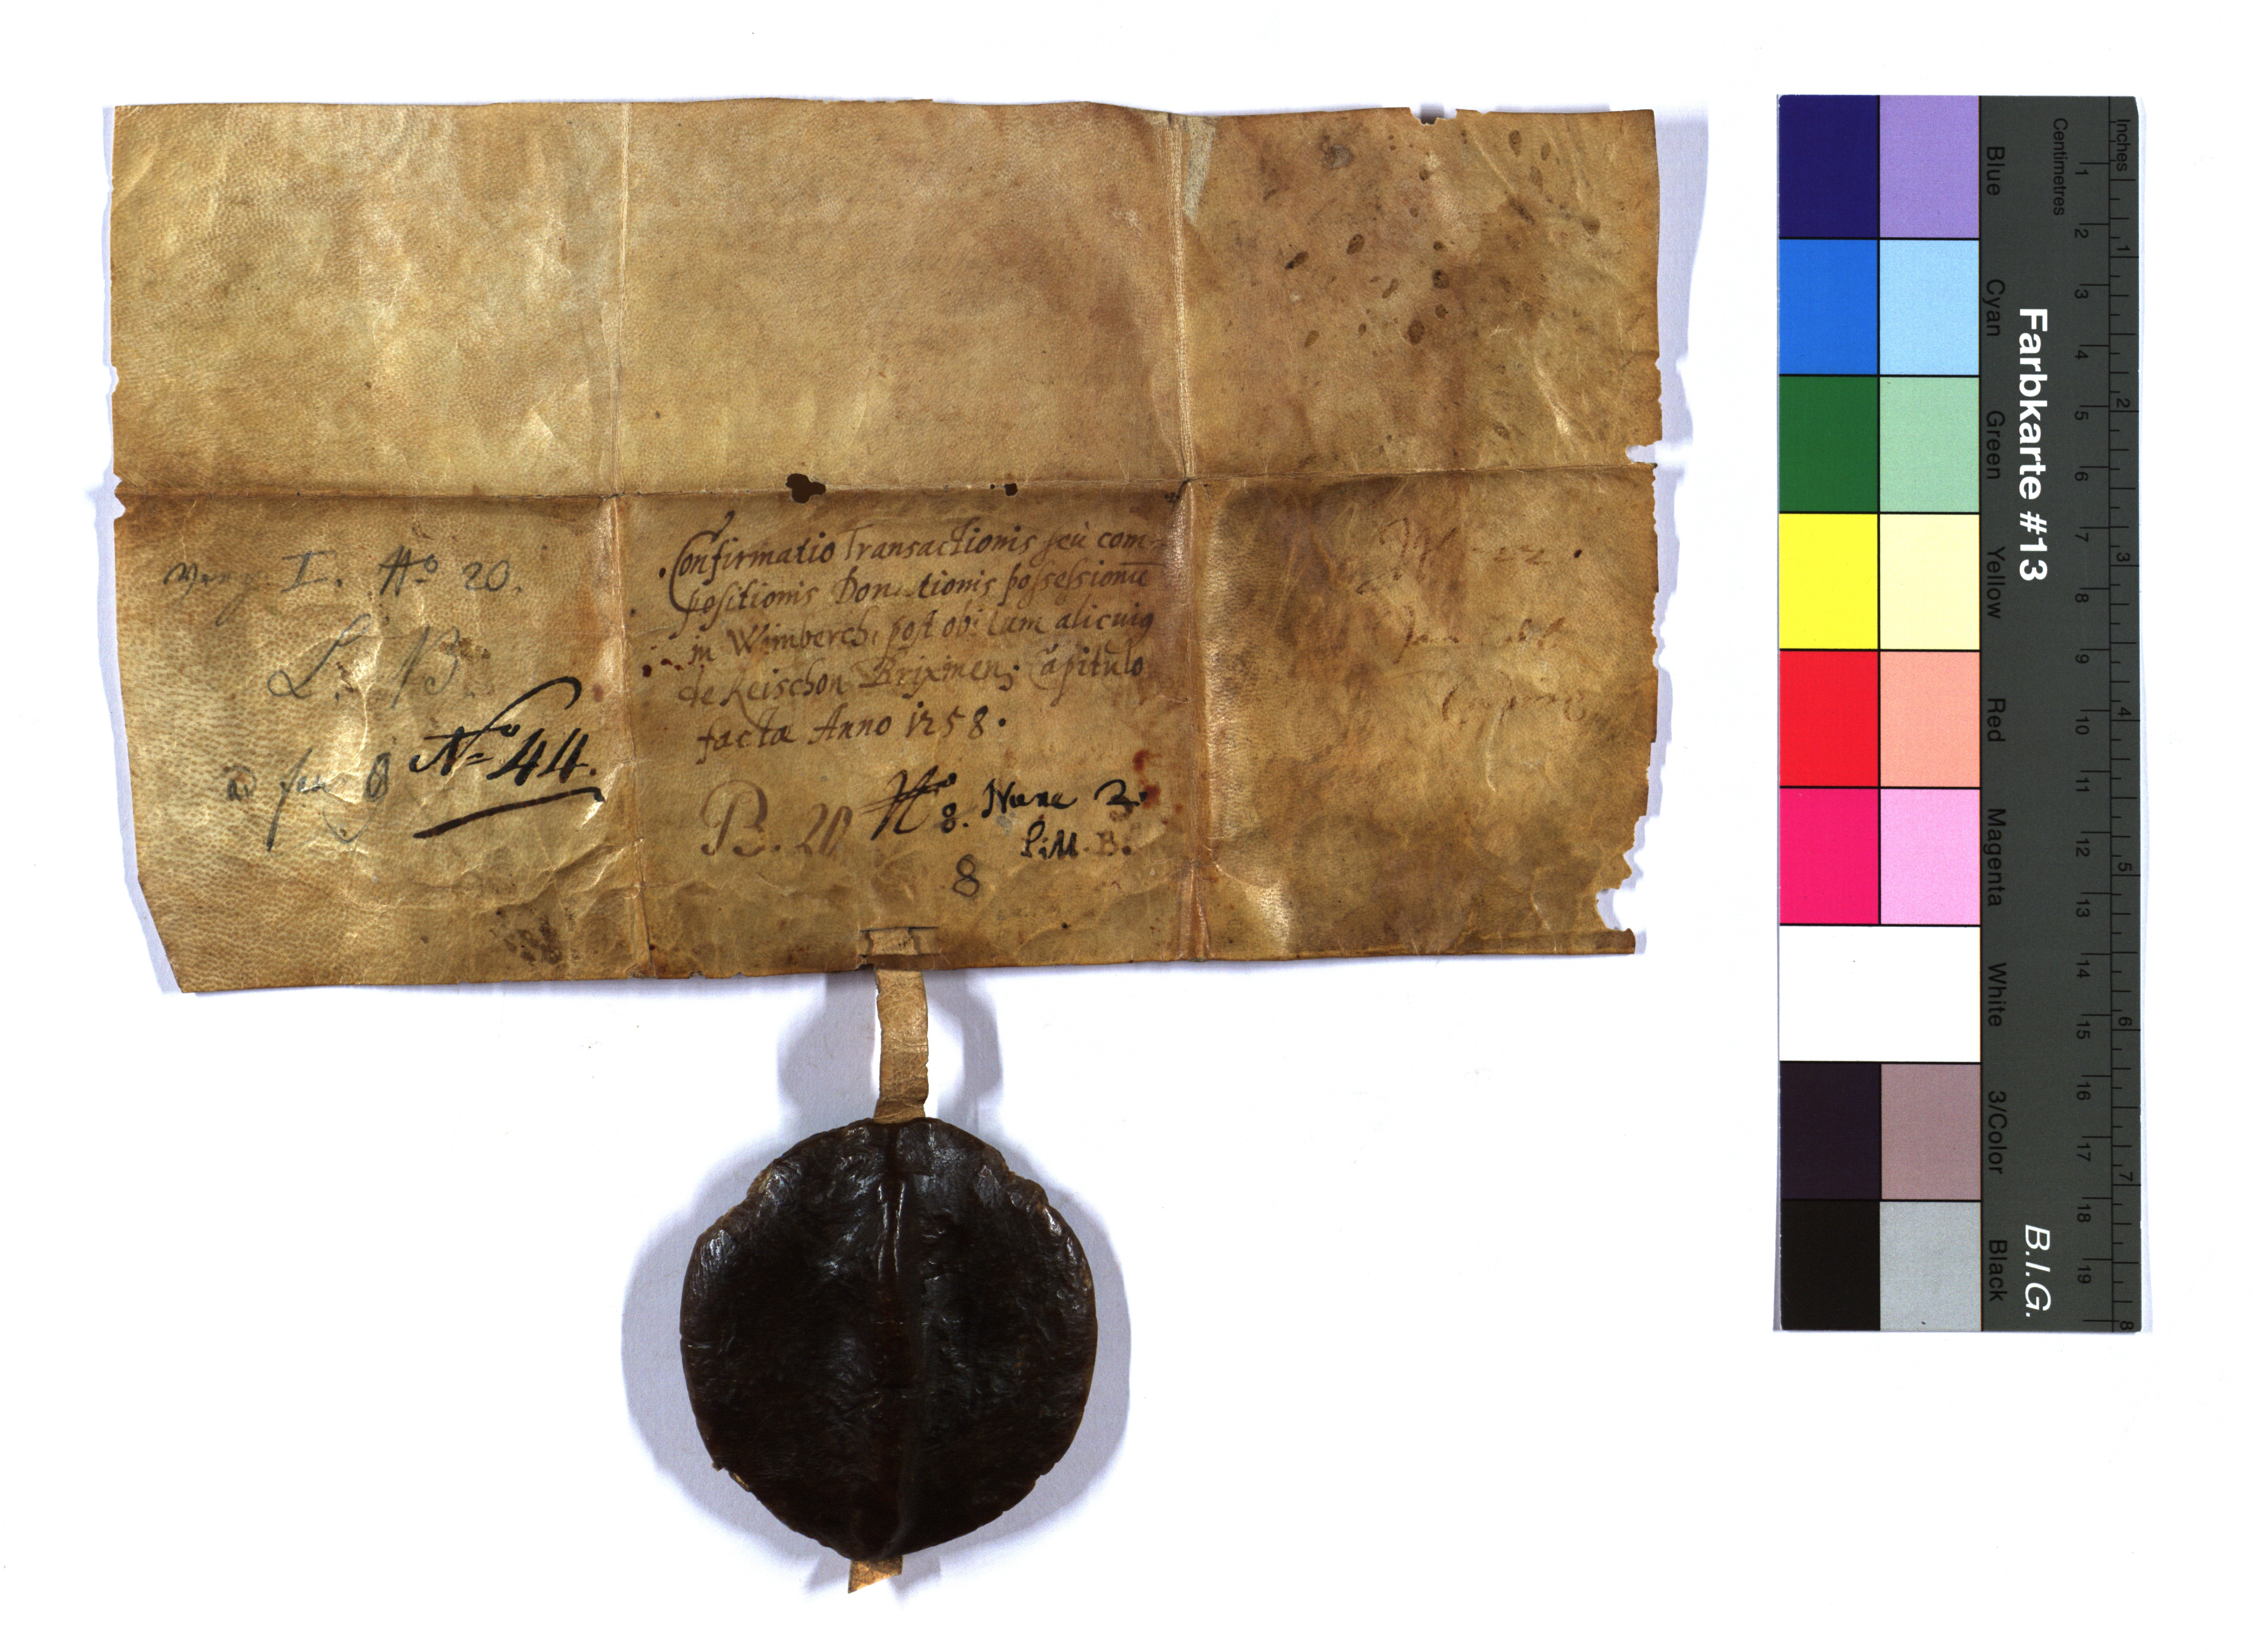 I. No 20.
L. B.
No 44.
Confirmatio Transactionis seù com-
positionis Donationis possessionū
in Wimberch, post obitum alicuiq
de Reischon Brixinen; Capitulo
facta Anno 1258.
B. 20 No 8. Nunc 2.
Litt. B.
8
Inches
Centimetres
1 2 3 4 5 6 7 8 9 10 11 12 13 14 15 16 17 18 19
1 2 3 4 5 6 7 8
Farbkarte #13
B.I.G.
Blue
Cyan
Green
Yellow
Red
Magenta
White
3/Color
Black